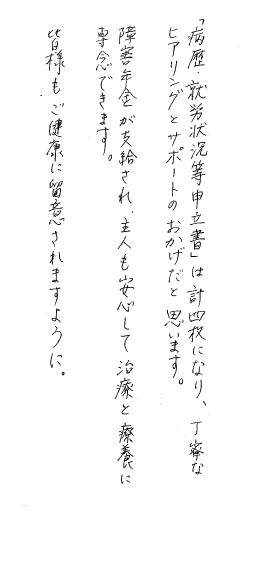 「病歴・就労状況等申立書」は計四枚になり、丁寧な
ヒアリングとサポートのおかげだと思います。
障害年金が支給され、主人も安心して治療と療養に
専念できます。
皆様もご健康に留意されますように。